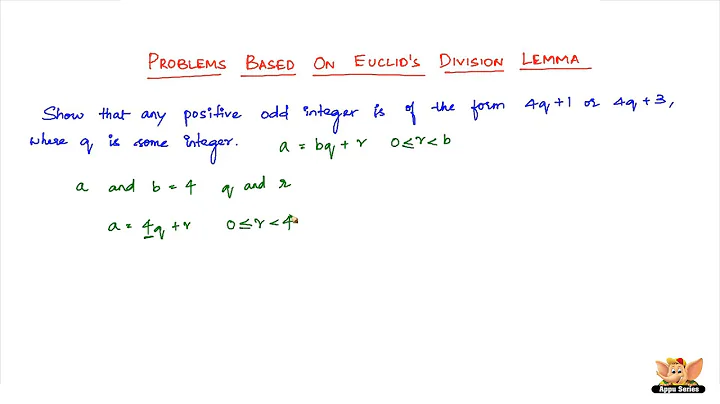 PROBLEMS BASED ON EUCLID'S DIVISION LEMMA
Show that any positive odd integer is of the form 4q+1 or 4q+3,
where q is some integer. a = bq + r 0 ≤ r < b
a and b = 4 q and r
a = 4q + r 0 ≤ r < 4
Appu Series